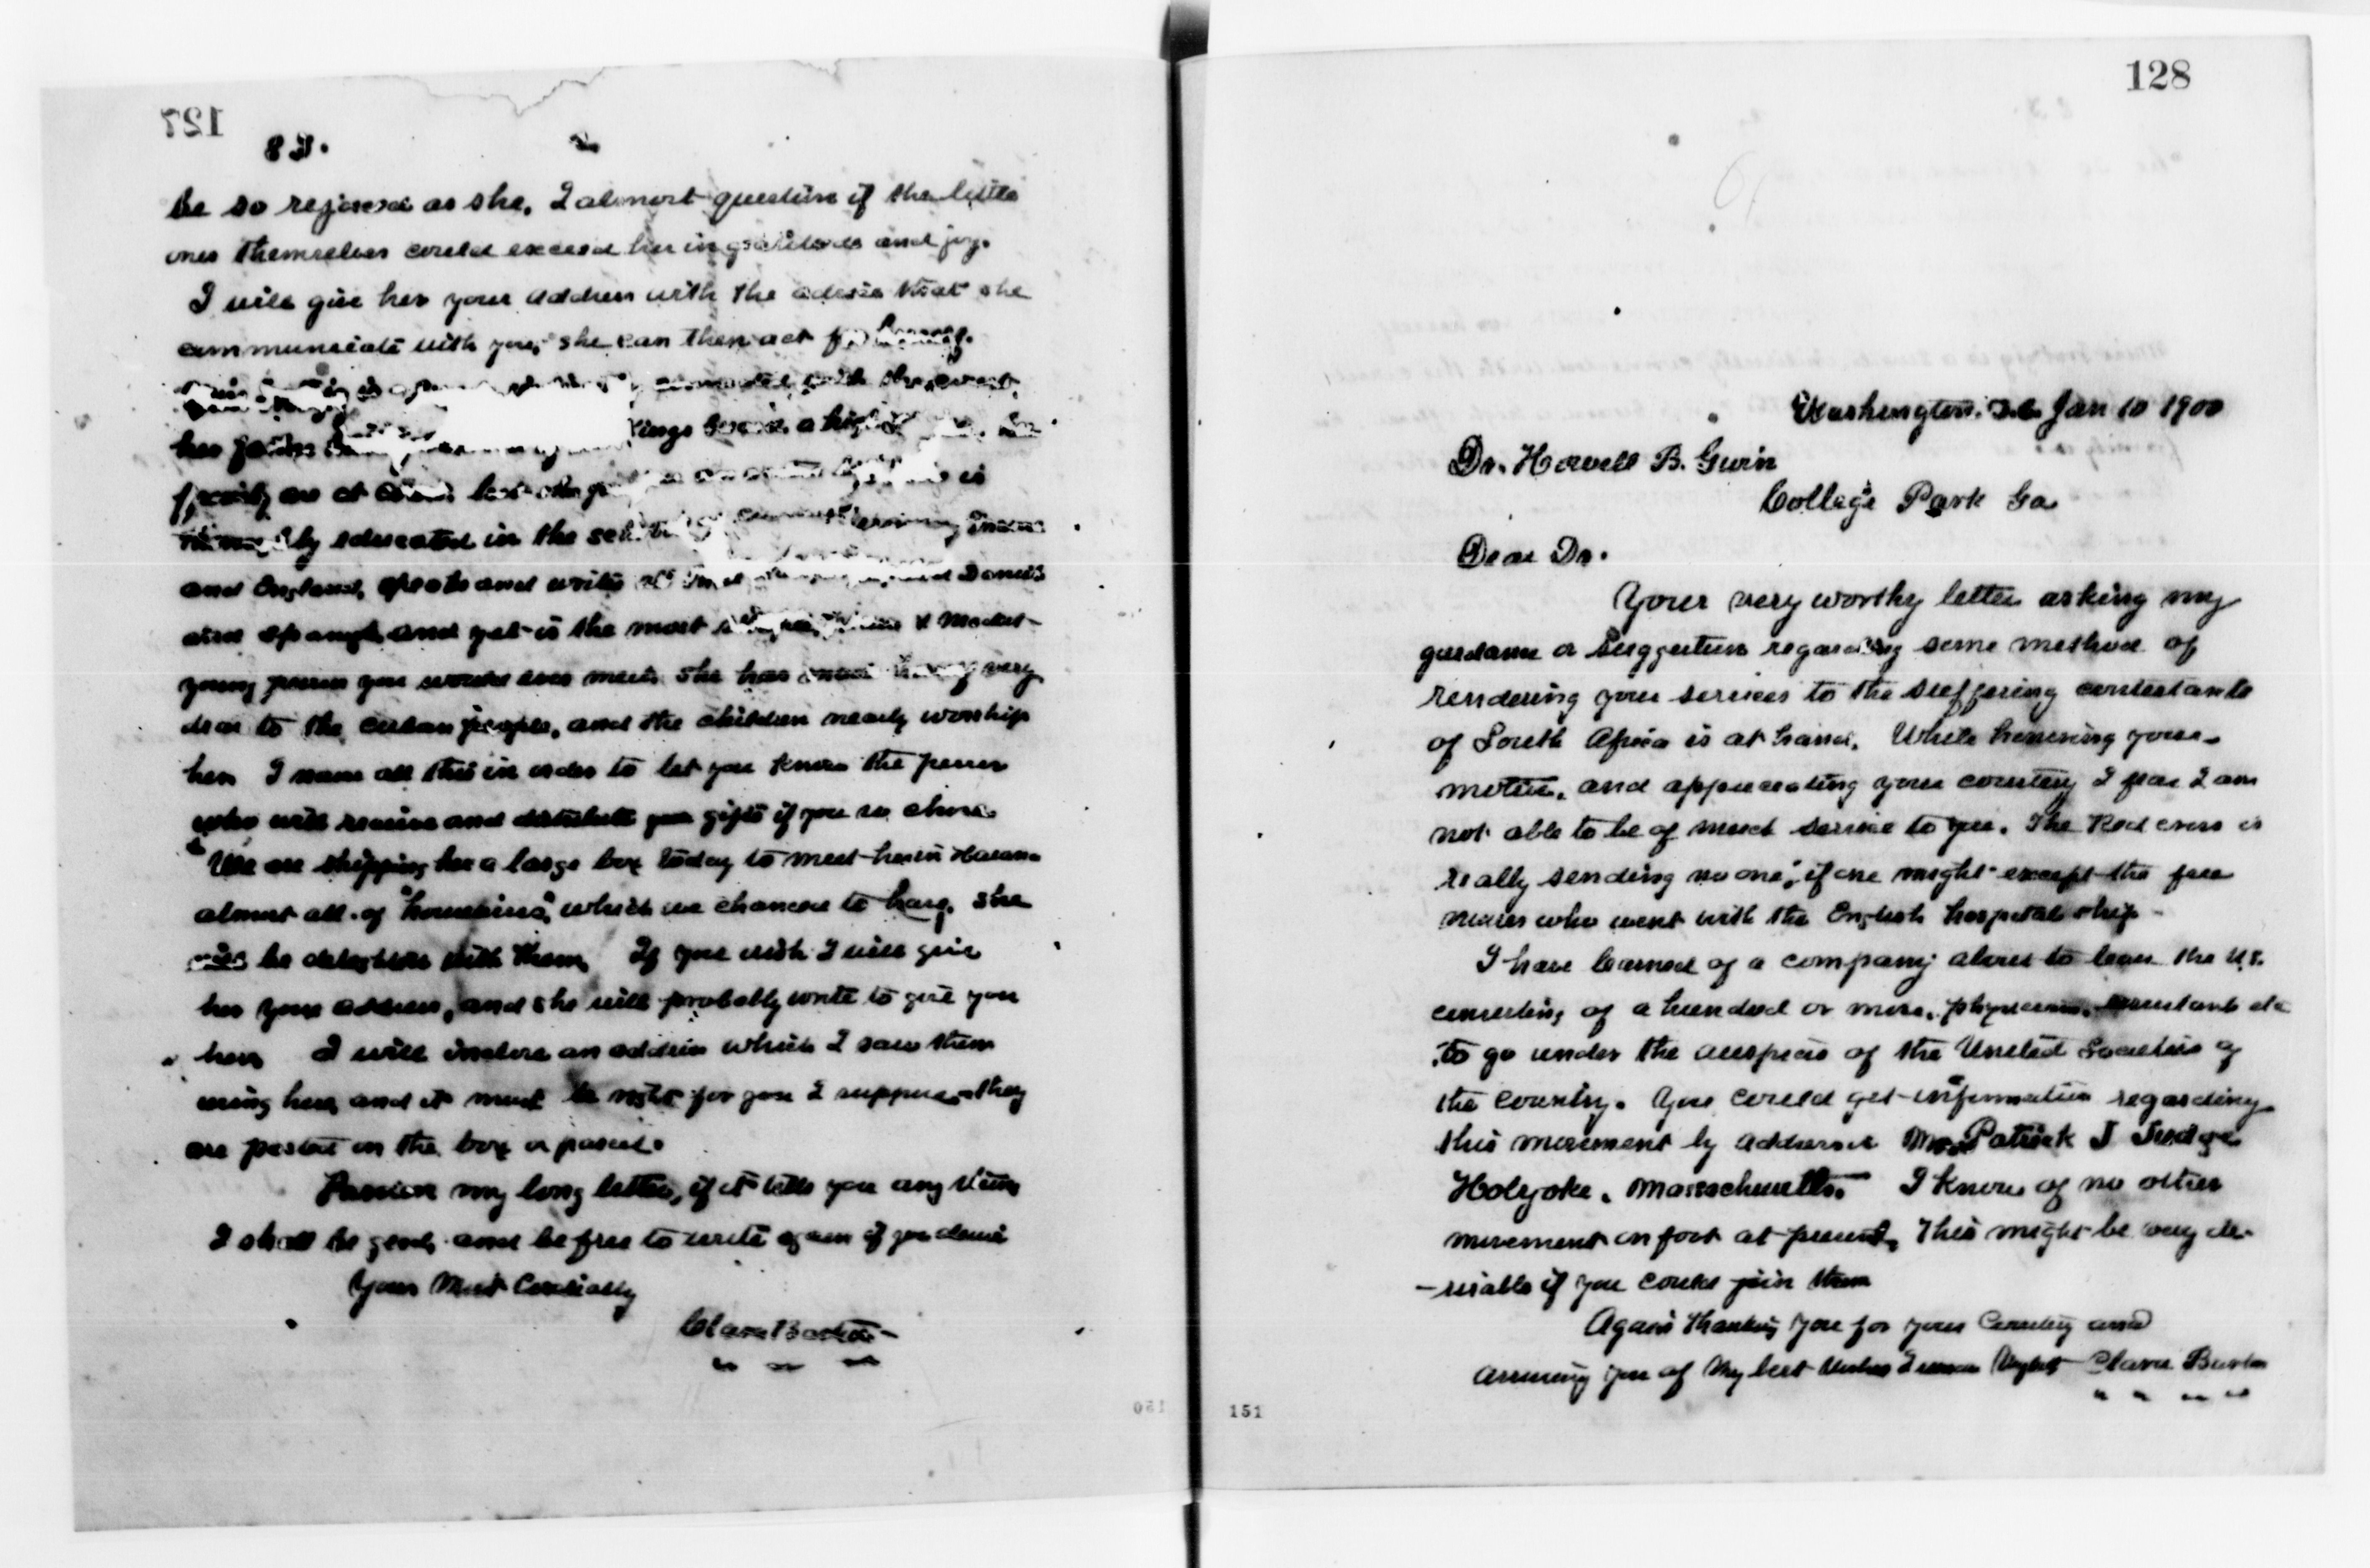 127
83.
be so rejoiced as she, I almost question if the little
ones themselves could exceed her in gratitude and joy.
I will give her your address with the advice that she
communicate with you, she can then act for herself.
with the event
her a high
family are at is
educated in the
and England, speaks and writes and Danish
and Spanish, and yet is the most & modest
young person you would ever meet. She has very
dear to the cuban people, and the children nearly worship
her I name all this in order to let you know the person
who will receive and distribute your gifts if you so chose
We are shipping her a large box today to meet her in Havana
almost all of "homespuns", which we chanced to have, she
will be delighted with them. If you wish I will give
her your address, and she will probably write to give you
hers I will inclose an address which I saw them
using here, and it must be right for you I suppose they
are pasted on the box or parcel.
Pardon my long letter, if it tells you any thing
I shall be glad, and be free to write again if you desire
Yours Most Cordially
Clara Barton
128
Washington. D.C. Jan 10 1900
Dr. Howell B. Gwin
College Park Ga
Dear Dr.
Your very worthy letter asking my
guidance or suggestion regarding some method of
rendering your services to the suffering contestants
of South Africa is at hand. While honoring your
motive, and appreciating your courtesy I fear I am
not able to be of much service to you. The Red cross is
really sending no one, if one might except the few
nurses who went with the English hospital ship -
I have learned of a company about to leave the U.S.
consisting of a hundred or more, physicians, assistants etc
to go under the auspices of the United Societies of
the country. You could get information regarding
this movement by address Mr. Patrick J Judge
Holyoke, Massachusetts. I know of no other
movement on foot at present. This might be very de-
-sirable if you could join them
Again thanking you for your Courtesy and
assuring you of My best Wishes I remain Clara Barton
150
151